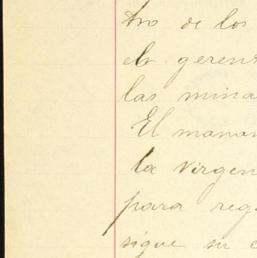 tro de los
el geren
las mina
El manan
la virgen
para reg
sigue su c